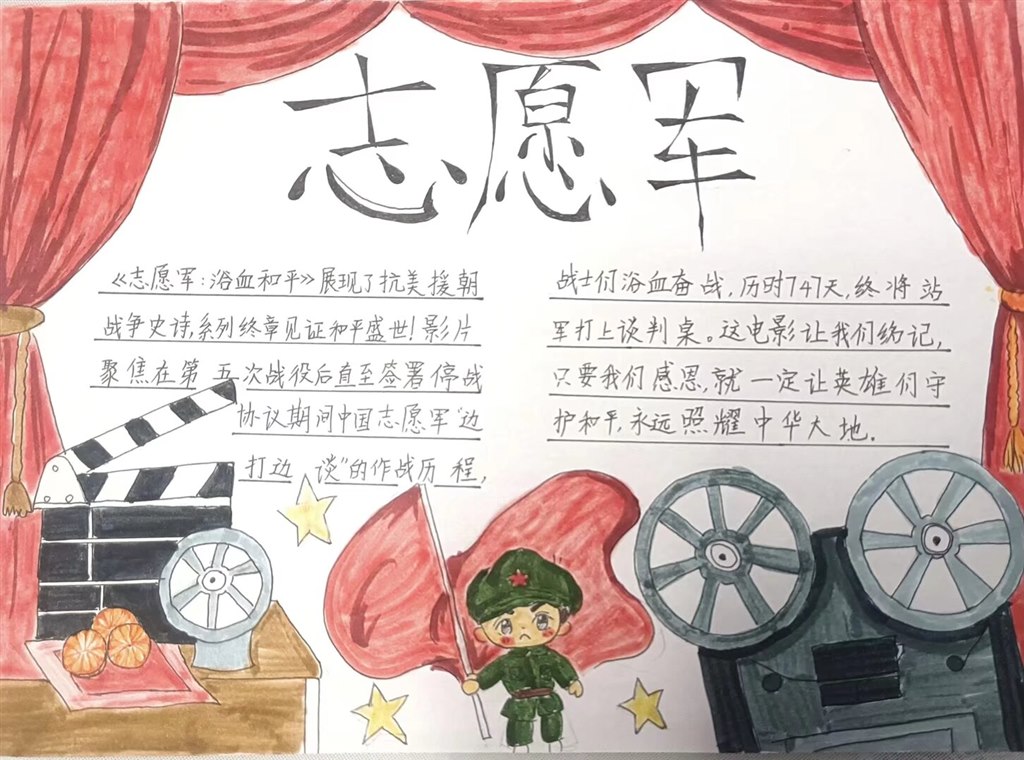 志愿军
《志愿军:浴血和平》展现了抗美援朝
战争史诗,系列终章见证和平盛世!影片
聚焦在第五次战役后直至签署停战
协议期间中国志愿军"边
打边谈"的作战历程,
战士们浴血奋战,历时747天,终将站
军打上谈判桌。这电影让我们约记,
只要我们感恩,就一定让英雄们守
护和平,永远照耀中华大地.